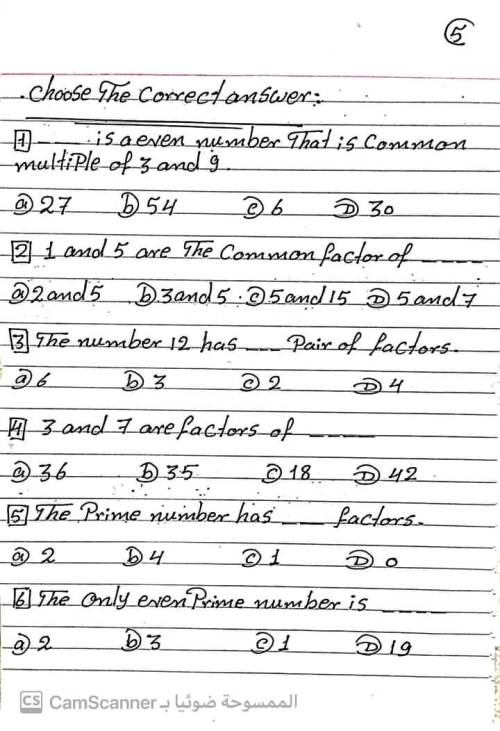 5
. Choose The Correct answer:.
1 ____ is a even number That is Common
multiple of 3 and 9.
a 27 b 54 c 6 D 30
2 1 and 5 are The Common factor of _____
a 2 and 5 b 3 and 5 . c 5 and 15 D 5 and 7
3 The number 12 has ___ Pair of factors.
a 6 b 3 c 2 D 4
4 3 and 7 are factors of _____
a 36 b 35 c 18 D 42
5 The Prime number has ___ factors.
a 2 b 4 c 1 D 0
6 The only even Prime number is _____
a 2 b 3 c 1 D 19
CS CamScanner الممسوحة ضوئيا بـ